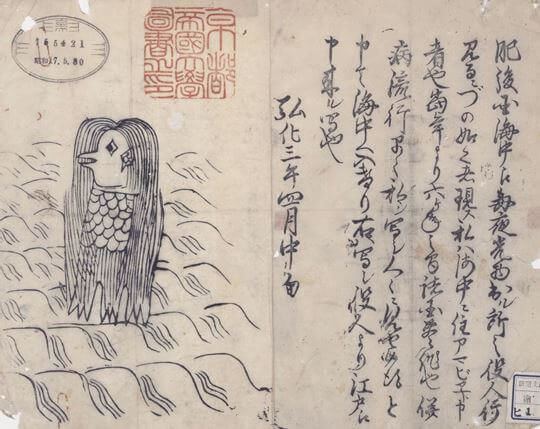 肥後国海中え毎夜光物出ル所之役人行
見るニづの如く者現ス私ハ海中ニ住アマビヱト申
者也当年より六ケ年之間諸国豊作也併
病流行早々私ヲ写シ人々ニ見セ候得と
申て海中へ入けり右写シ役人より江戸え
申来ル写也
弘化三年四月中旬
京都
帝國大學
圖書之印
昭和17.5.30